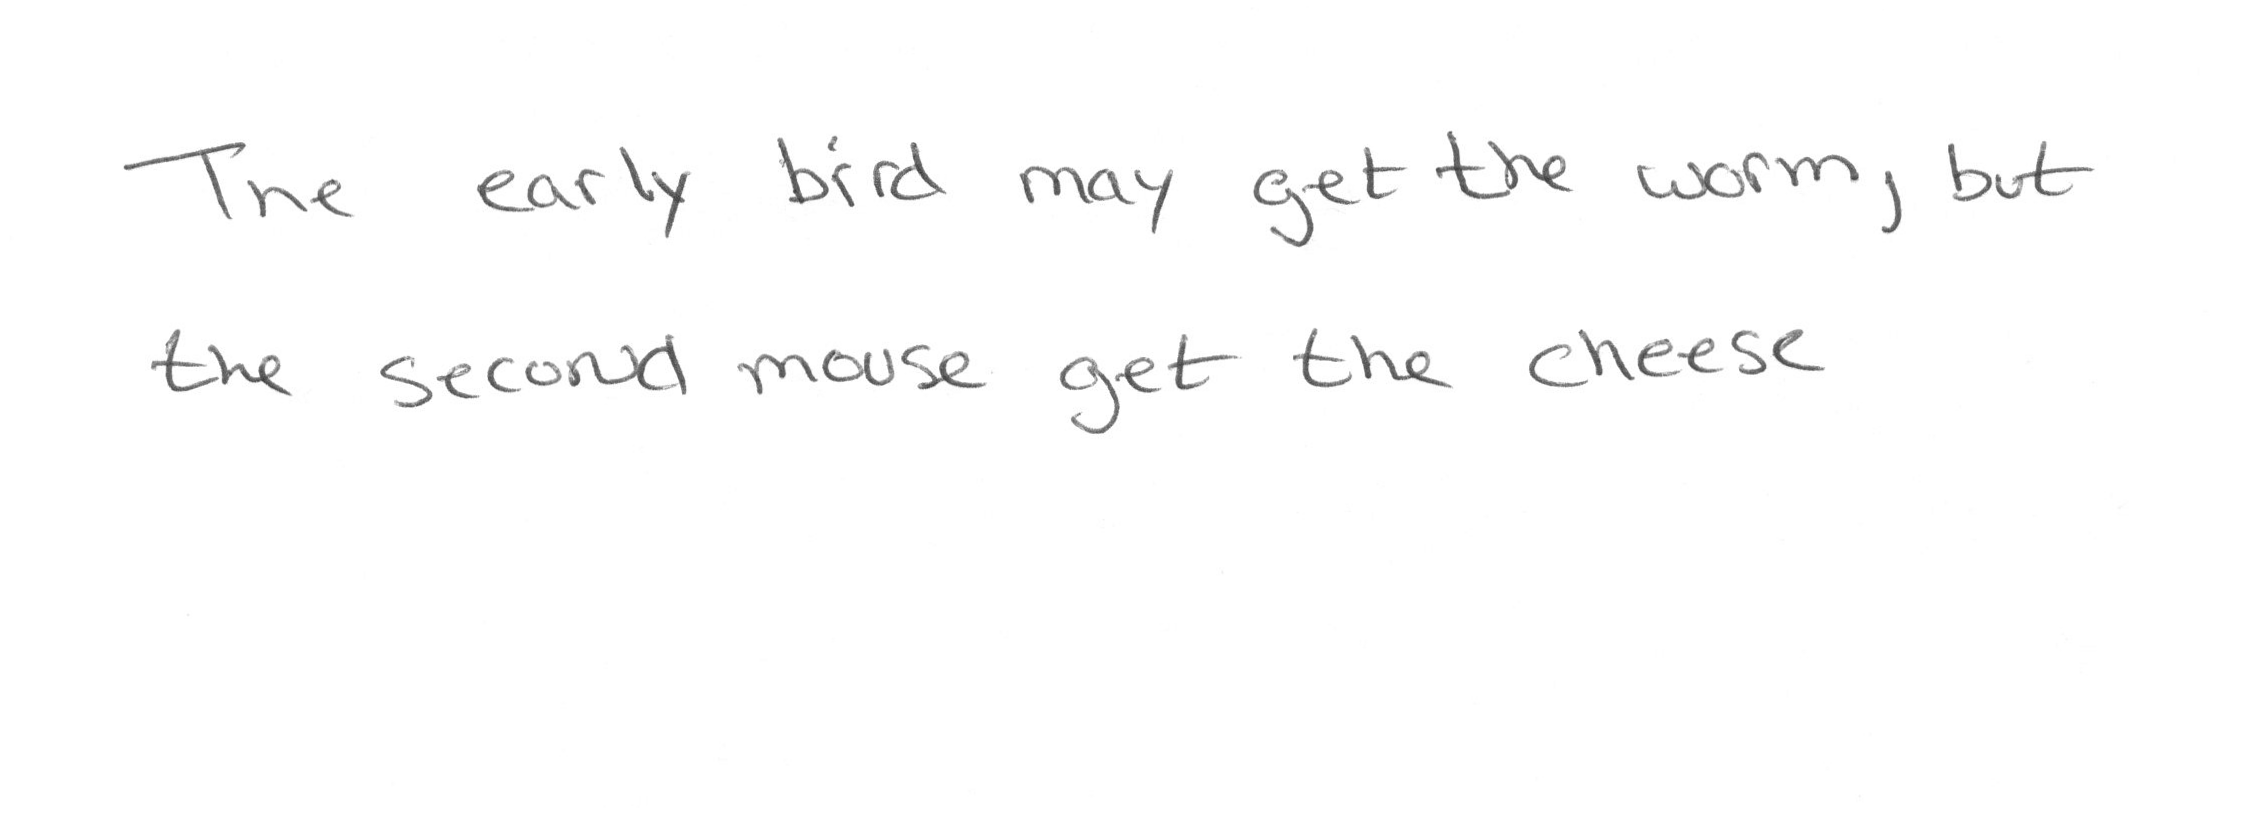 The early bird may get the worm, but
the second mouse get the cheese